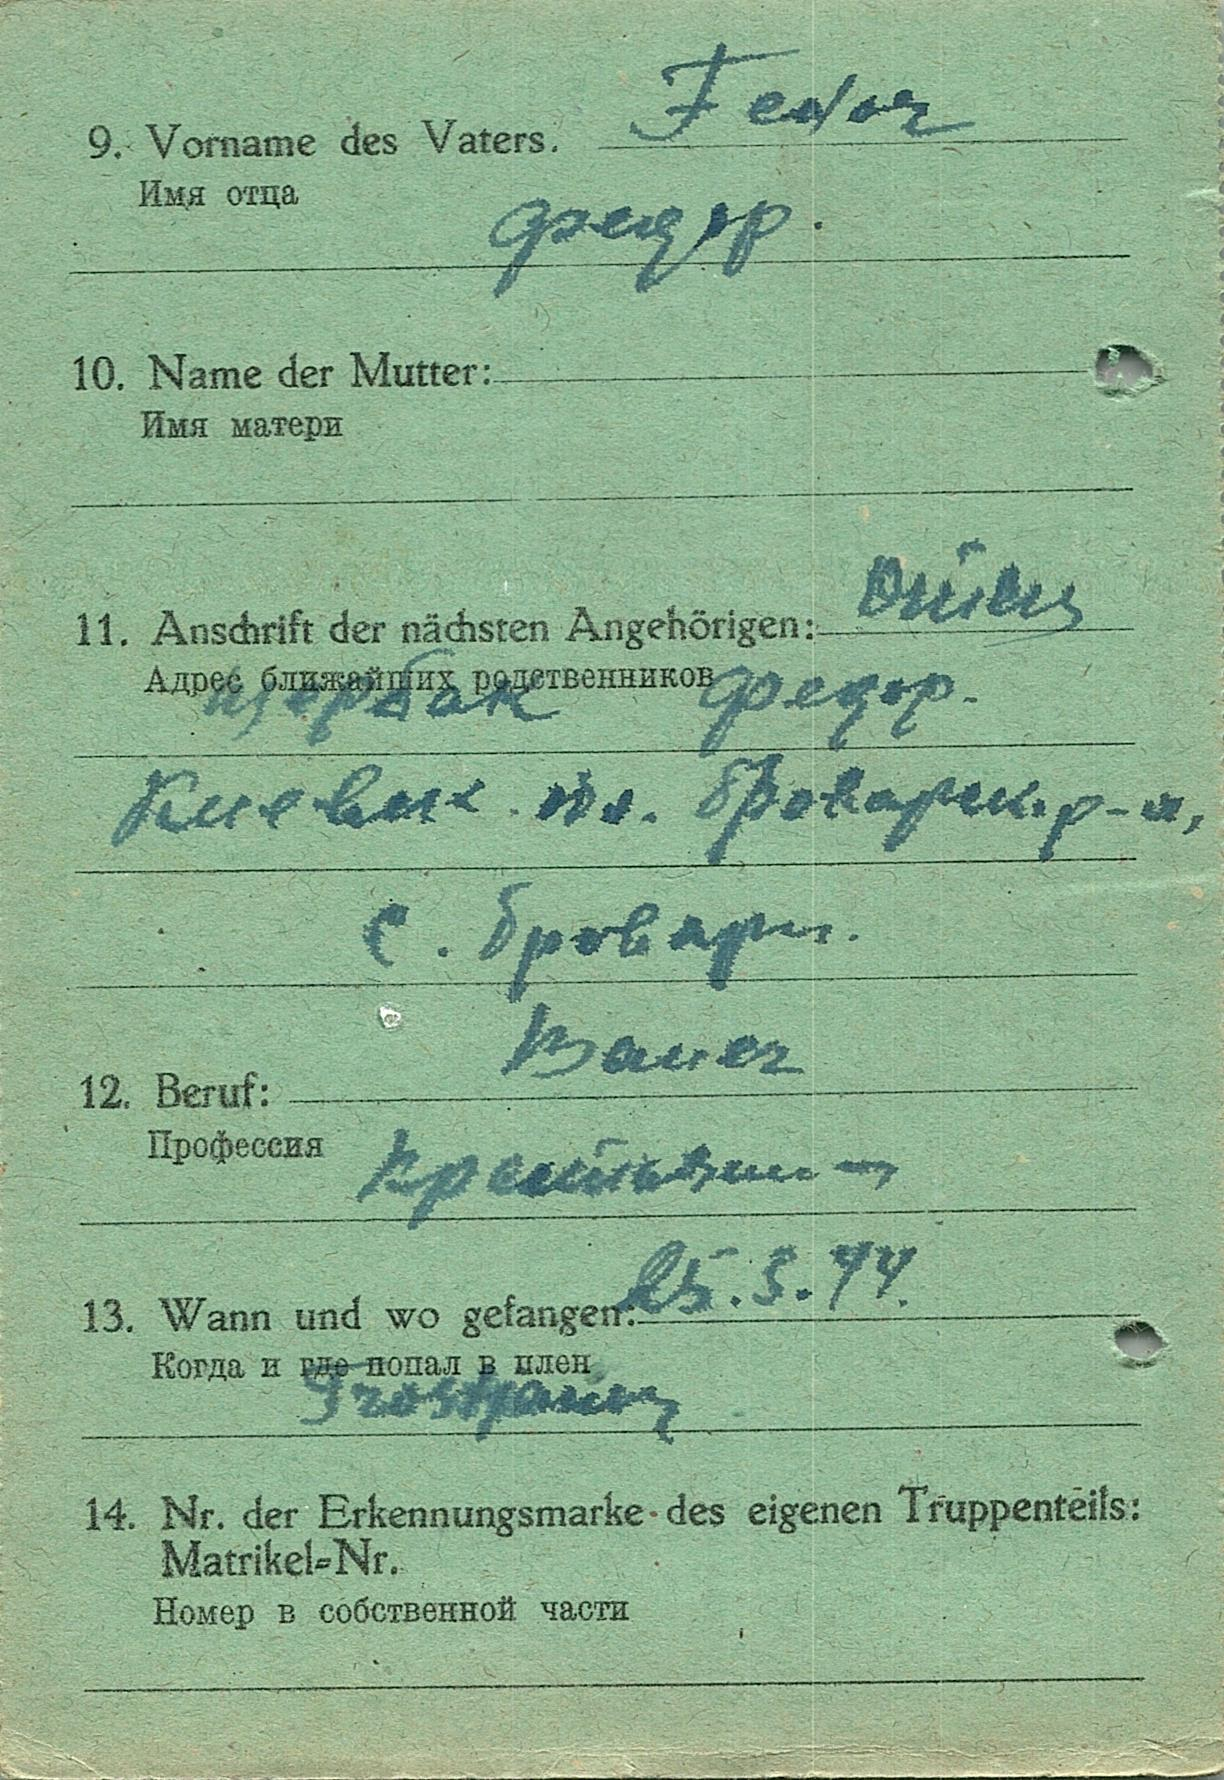 9. Vorname des Vaters. Fedor
Имя отца
Федор.
10. Name der Mutter:
Имя матери
11. Anschrift der nächsten Angehörigen: Отец
Адрес ближайших родственников
Щербак Федор.
Киевск. об. Броварск. р-н,
с. Бровары.
Bauer
12. Beruf:
Профессия
Крестьянин
13. Wann und wo gefangen: 25.3.44.
Когда и где попал в плен
14. Nr. der Erkennungsmarke des eigenen Truppenteils:
Matrikel=Nr.
Номер в собственной части